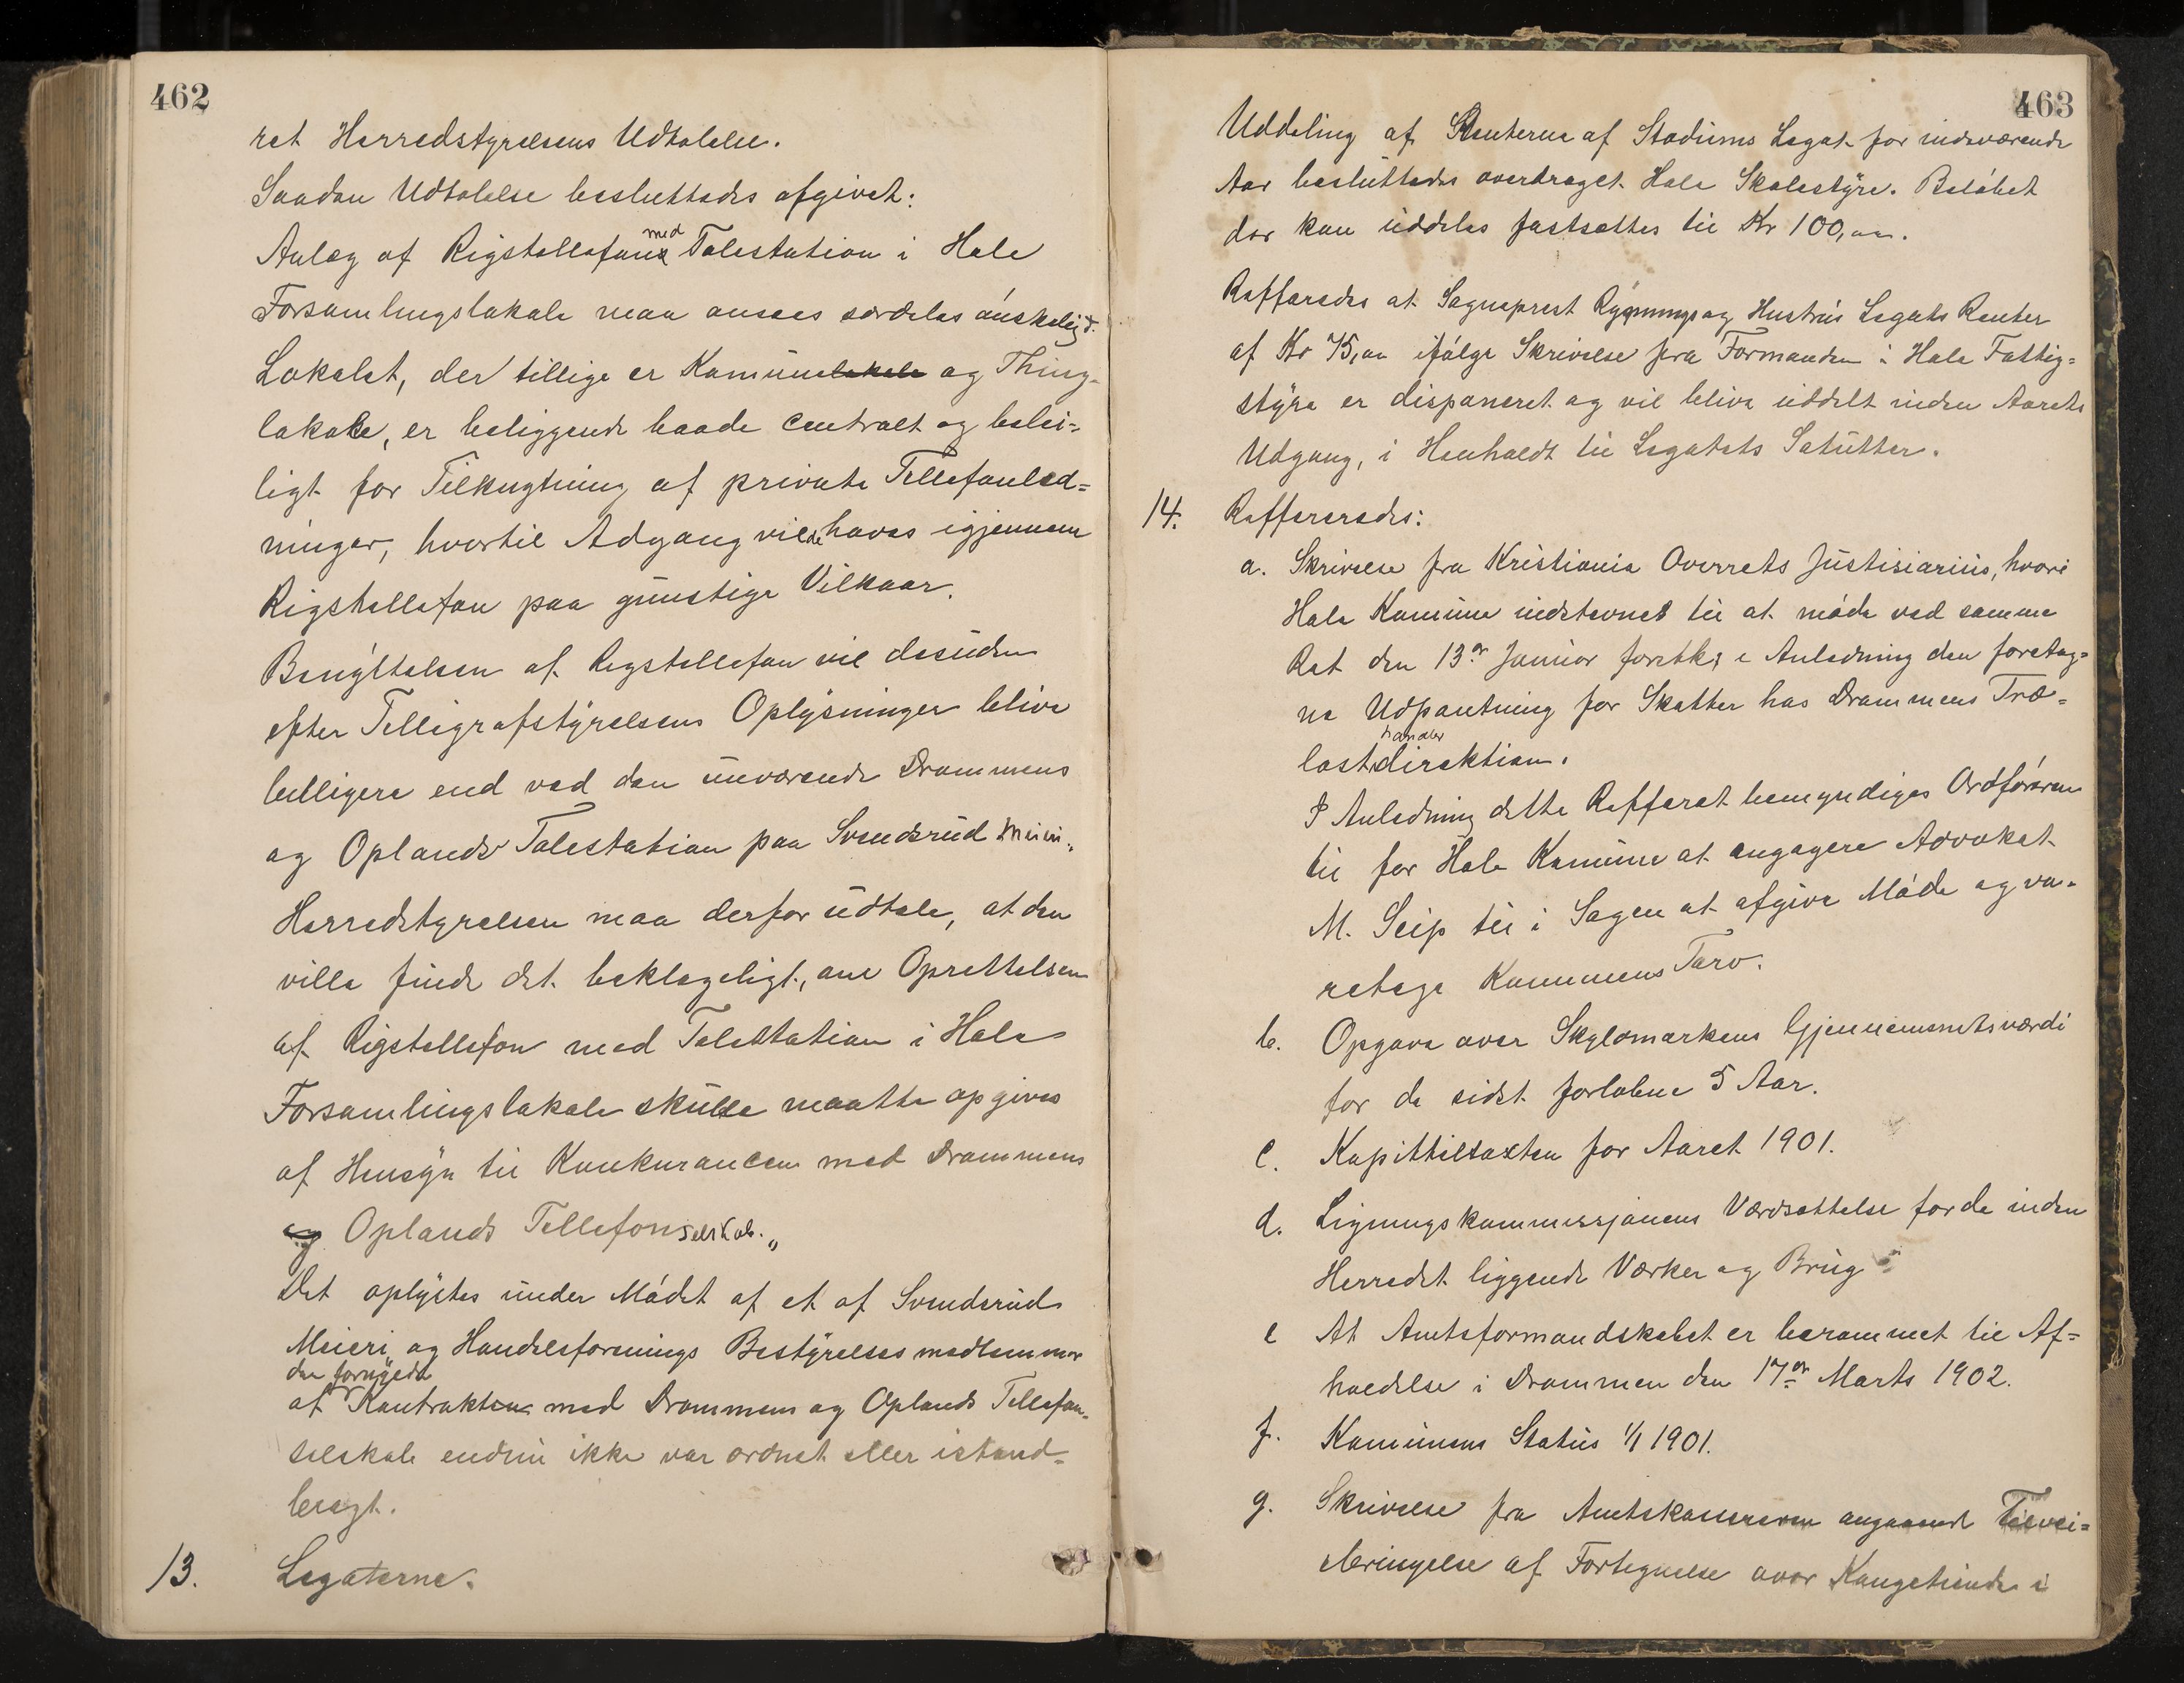 462
ret Herredstyrelsens Udtalelse.
Saadan Udtalelse besluttedes afgivet:
Anlæg af Rigstellefon med Talestation i Hole
Forsamlingslokale maa ansees særdeles ønskeligt.
Lokalet, der tillige er Komunelokale og Thing-
lokale, er beliggende baade centralt og belei-
ligt for Tilknytning af private Tellefonled-
ninger, hvortil Adgang vilde haves igjennem
Rigstellefon paa gunstige Vilkaar.
Benyttelsen af Rigstellefon vil desuden
efter Telligrafstyrelsens Oplysninger blive
billigere end ved den nuværende Drammens
og Oplands Talestation paa Svendsrud Meieri.
Herredstyrelsen maa derfor udtale, at den
ville finde det beklageligt, om Oprettelsen
af Rigstellefon med Talestation i Hole
Forsamlingslokale skulle maatte opgives
af Hensyn til Konkurancen med Drammens
og Oplands Tellefonselskab."
Det oplystes under Mødet af et af Svendsrud
Meieri og Handelsforenings Bestyrelsesmedlemmer
den fornyede
at Kontrakten med Drammens og Oplands Tellefon-
selskab endnu ikke var ordnet eller istand-
bragt.
13. Legaterne.
463
Uddeling af Renterne af Stadiums Legat for indeværende
Aar besluttedes overdraget Hole Skolestyre. Beløbet
der kan uddeles fastsættes til Kr 100,00.
Refferedes at Sogneprest Rynnings og Hustrus Legats Renter
af Kr 75,00 ifølge Skrivelse fra Formanden i Hole Fattig-
styre er disponeret og vil blive uddelt inden Aarets
Udgang, i Henhold til Legatets Satutter.
14. Reffereredes:
a. Skrivelse fra Kristiania Overrets Justisiarius, hvori
Hole Komune indstevnes til at møde ved samme
Ret den 13de Januar førstk; i Anledning den foretag-
ne Udpantning for Skatter hos Drammens Træ-
handler
lastdirektion.
I Anledning dette Refferat bemyndiges Ordføreren
til for Hole Komune at engagere Advokat
M. Seip til i Sagen at afgive Møde og va-
retage Kommunens Tarv.
b. Opgave over Skyldmarkens Gjennemsnitsværdi
for de sidst forløbne 5 Aar.
c. Kapitteltaxten for Aaret 1901.
d. Ligningskommissjonens Værdsættelse for de inden
Herredet liggende Værker og Brug
e At Amtsformandskabet er berammet til Af-
holdelse i Drammen den 17de Marts 1902.
f. Komunens Status 1/1 1901.
g. Skrivelse fra Amtskassereren angaaende Tilvei-
ebringelse af Fortegnelse over Kongetiende i